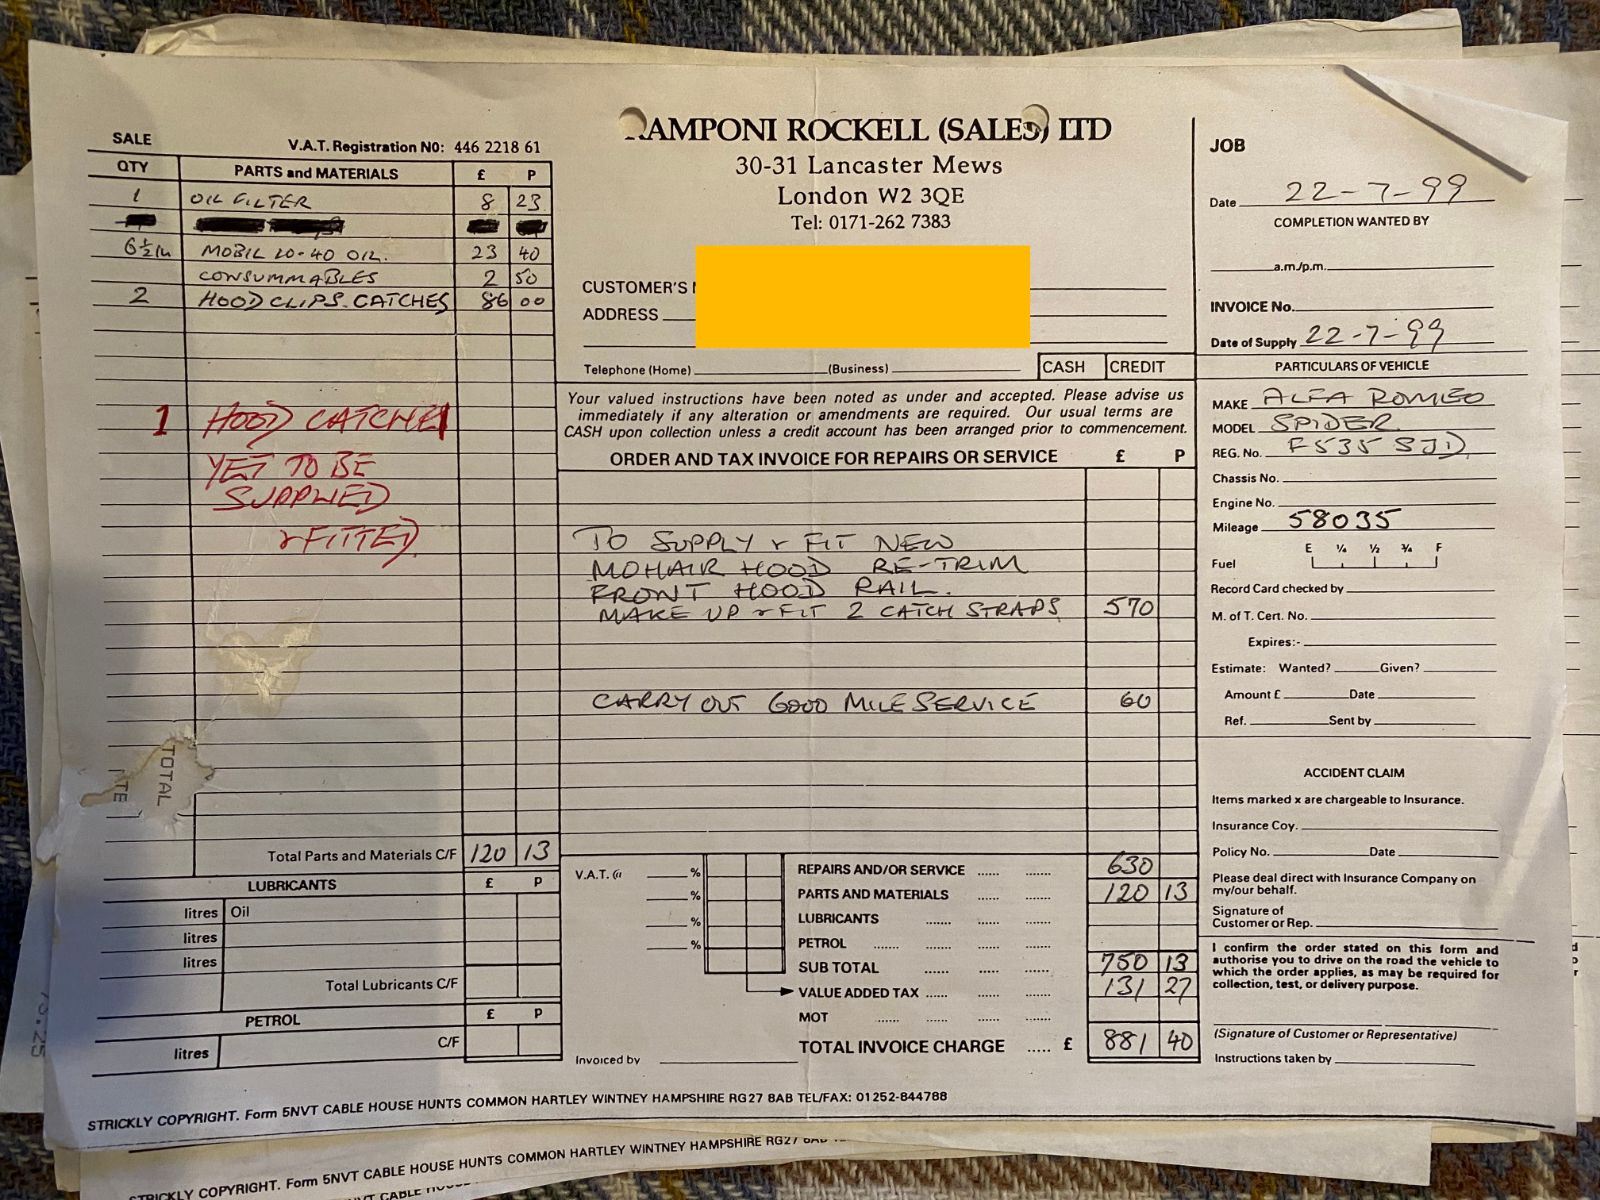 SALE
V.A.T. Registration N0: 446 2218 61
QTY PARTS and MATERIALS £ P
1 OIL FILTER 8 23
6½ltr MOBIL 20-40 OIL. 23 40
CONSUMMABLES 2 50
2 HOOD CLIPS. CATCHES 86 00
1 HOOD CATCHE
YET TO BE
SUPPLIED
& FITTED
TOTAL
TE
Total Parts and Materials C/F 120 13
LUBRICANTS £ P
litres Oil
litres
litres
Total Lubricants C/F
PETROL £ P
litres C/F
RAMPONI ROCKELL (SALES) LTD
30-31 Lancaster Mews
London W2 3QE
Tel: 0171-262 7383
CUSTOMER'S
ADDRESS
Telephone (Home) (Business) CASH CREDIT
Your valued instructions have been noted as under and accepted. Please advise us
immediately if any alteration or amendments are required. Our usual terms are
CASH upon collection unless a credit account has been arranged prior to commencement.
ORDER AND TAX INVOICE FOR REPAIRS OR SERVICE £ P
TO SUPPLY & FIT NEW
MOHAIR HOOD RE-TRIM
FRONT HOOD RAIL.
MAKE UP & FIT 2 CATCH STRAPS 570
CARRY OUT 6000 MILE SERVICE 60
V.A.T. @ %
%
%
%
REPAIRS AND/OR SERVICE ...... ....... 630
PARTS AND MATERIALS ...... ....... 120 13
LUBRICANTS ....... .......
PETROL ....... ...... .......
SUB TOTAL ...... ....... 750 13
VALUE ADDED TAX ...... ....... 131 27
MOT ....... ...... .......
TOTAL INVOICE CHARGE ..... £ 881 40
Invoiced by
JOB
Date 22-7-99
COMPLETION WANTED BY
a.m./p.m.
INVOICE No.
Date of Supply 22-7-99
PARTICULARS OF VEHICLE
MAKE ALFA ROMEO
MODEL SPIDER.
REG. No. F535 SJD
Chassis No.
Engine No.
Mileage 58035
E ¼ ½ ¾ F
Fuel
Record Card checked by
M. of T. Cert. No.
Expires:-
Estimate: Wanted? Given?
Amount £ Date
Ref. Sent by
ACCIDENT CLAIM
Items marked x are chargeable to Insurance.
Insurance Coy.
Policy No. Date
Please deal direct with Insurance Company on
my/our behalf.
Signature of
Customer or Rep.
I confirm the order stated on this form and
authorise you to drive on the road the vehicle to
which the order applies, as may be required for
collection, test, or delivery purpose.
(Signature of Customer or Representative)
Instructions taken by
STRICKLY COPYRIGHT. Form 5NVT CABLE HOUSE HUNTS COMMON HARTLEY WINTNEY HAMPSHIRE RG27 8AB TEL/FAX: 01252-844788
STRICKLY COPYRIGHT. Form 5NVT CABLE HOUSE HUNTS COMMON HARTLEY WINTNEY HAMPSHIRE RG27 8AB